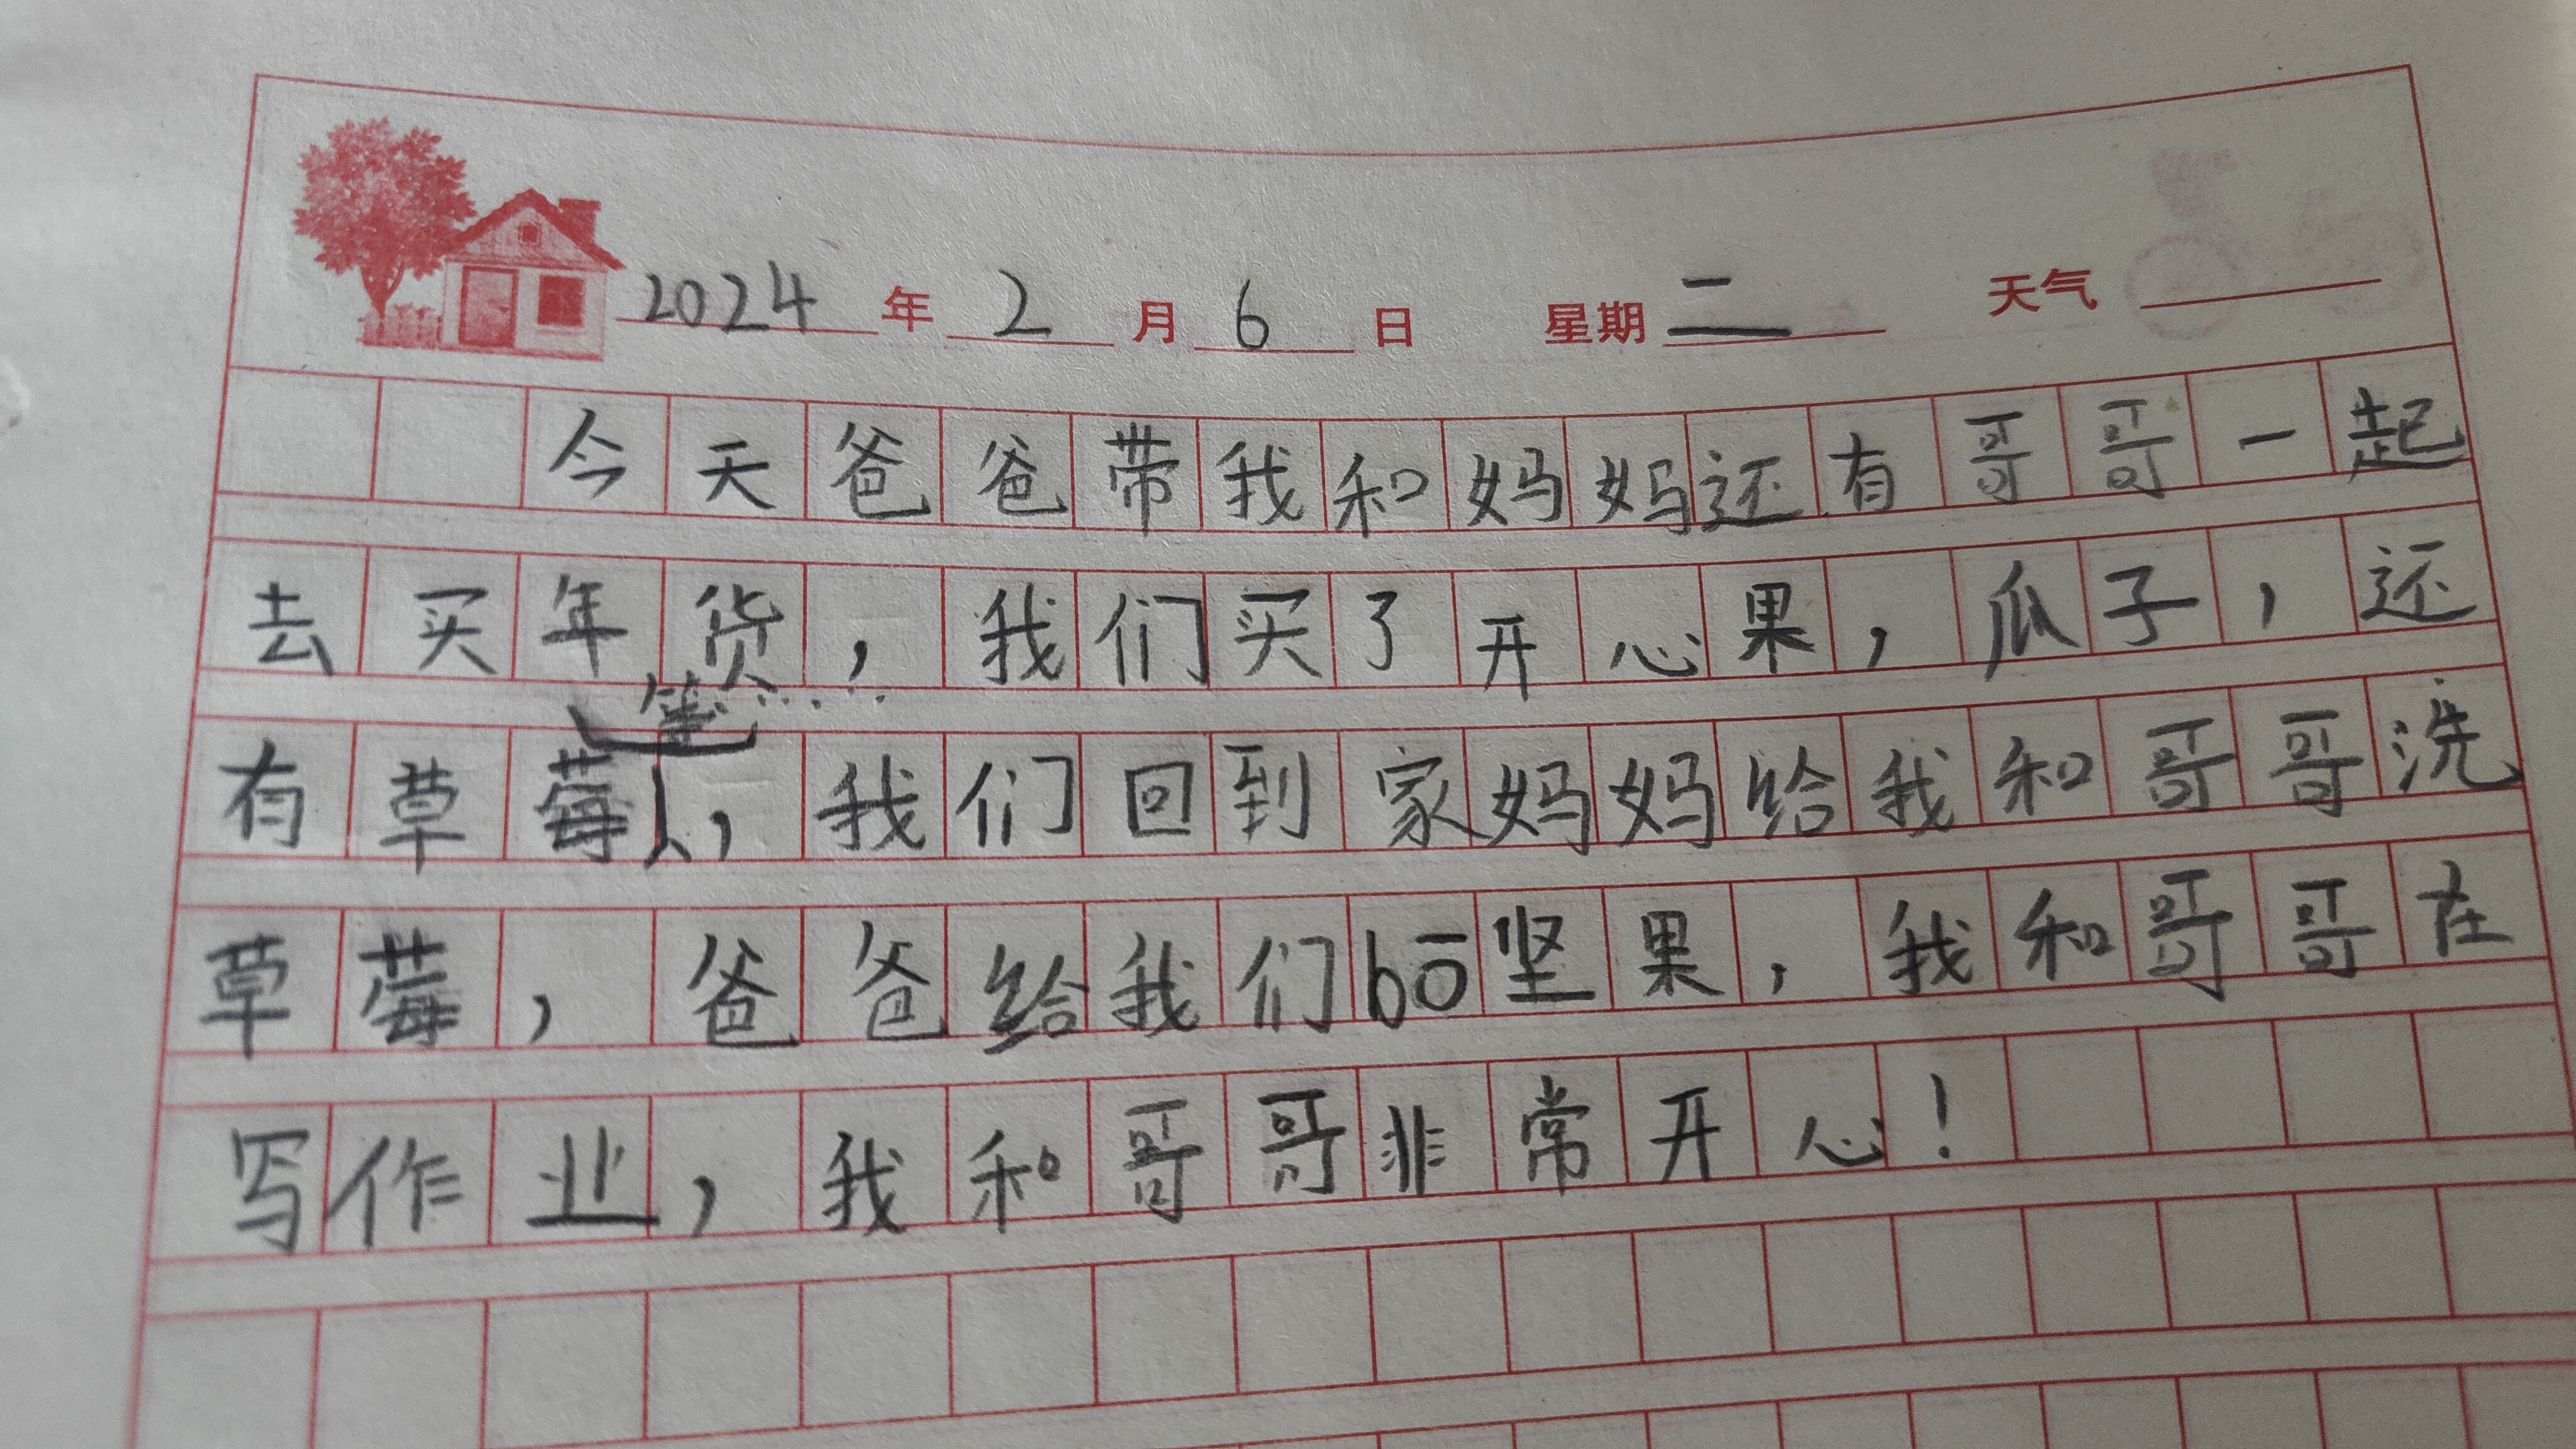 2024年2月6日 星期二 天气
今天爸爸带我和妈妈还有哥哥一起
去买年货，我们买了开心果，瓜子，还
有草莓等……，我们回到家妈妈给我和哥哥洗
草莓，爸爸给我们bō坚果，我和哥哥在
写作业，我和哥哥非常开心！